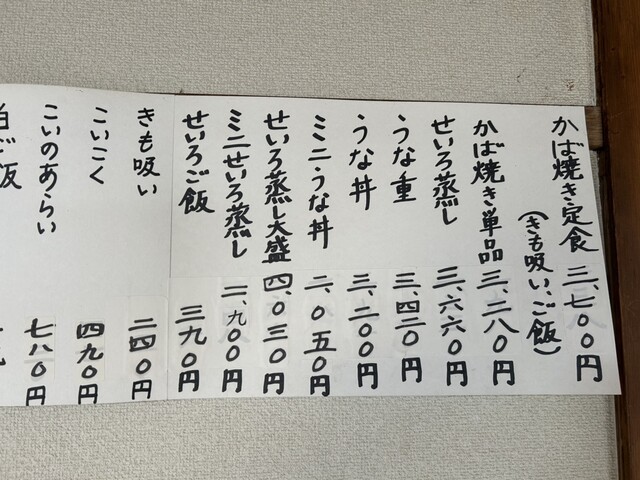 かば焼き定食 三、七００円
(きも吸い、ご飯)
かば焼き単品 三、二八０円
せいろ蒸し 三、六六０円
うな重 三、四二０円
うな丼 三、二００円
ミニうな丼 二、０五０円
せいろ蒸し大盛 四、０三０円
ミニせいろ蒸し 二、九００円
せいろご飯 三九０円
きも吸い 二四０円
こいこく 四九０円
こいのあらい 七八０円
白ご飯